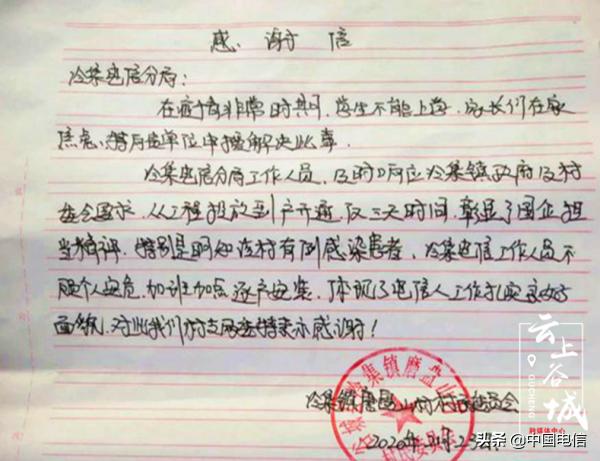 感谢信
冷集电信分局：
在疫情非常时期，学生不能上学，家长们在家
焦急、特向贵单位申报解决此事。
冷集电信分局工作人员，及时响应冷集镇政府及村
委会要求，从工程投放到户开通，仅三天时间，彰显了国企担
当精神，特别是明知该村有例感染患者，冷集电信工作人员不
顾个人安危，加班加点逐户安装，体现了电信人工作扎实良好
面貌，对此我们村支两委特表示感谢！
冷集镇磨盘山村村委员会
2020年 月23日
谷城县冷集镇磨盘山村
村民委员会
云上谷城
GUCHENG
融媒体中心
头条 @中国电信